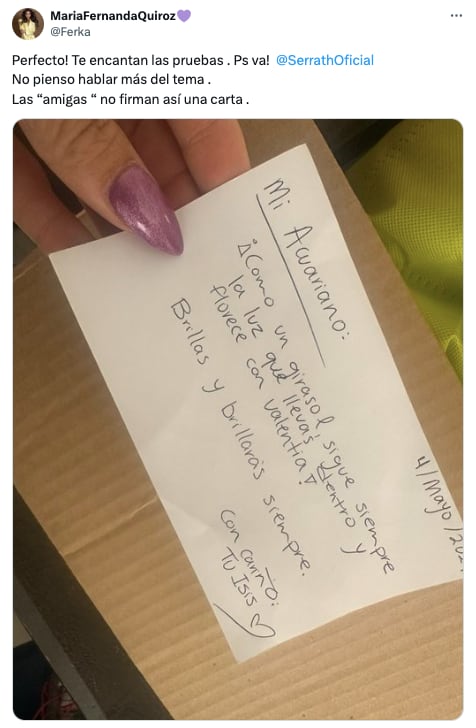 MariaFernandaQuiroz💜
@Ferka
Perfecto! Te encantan las pruebas . Ps va! @SerrathOficial
No pienso hablar más del tema .
Las “amigas “ no firman así una carta .
4/Mayo/202
Mi Acuariano:
¡Como un girasol, sigue siempre
la luz que llevas dentro y
florece con valentía!
Brillas y brillarás siempre.
Con cariño:
Tu Isis ♡